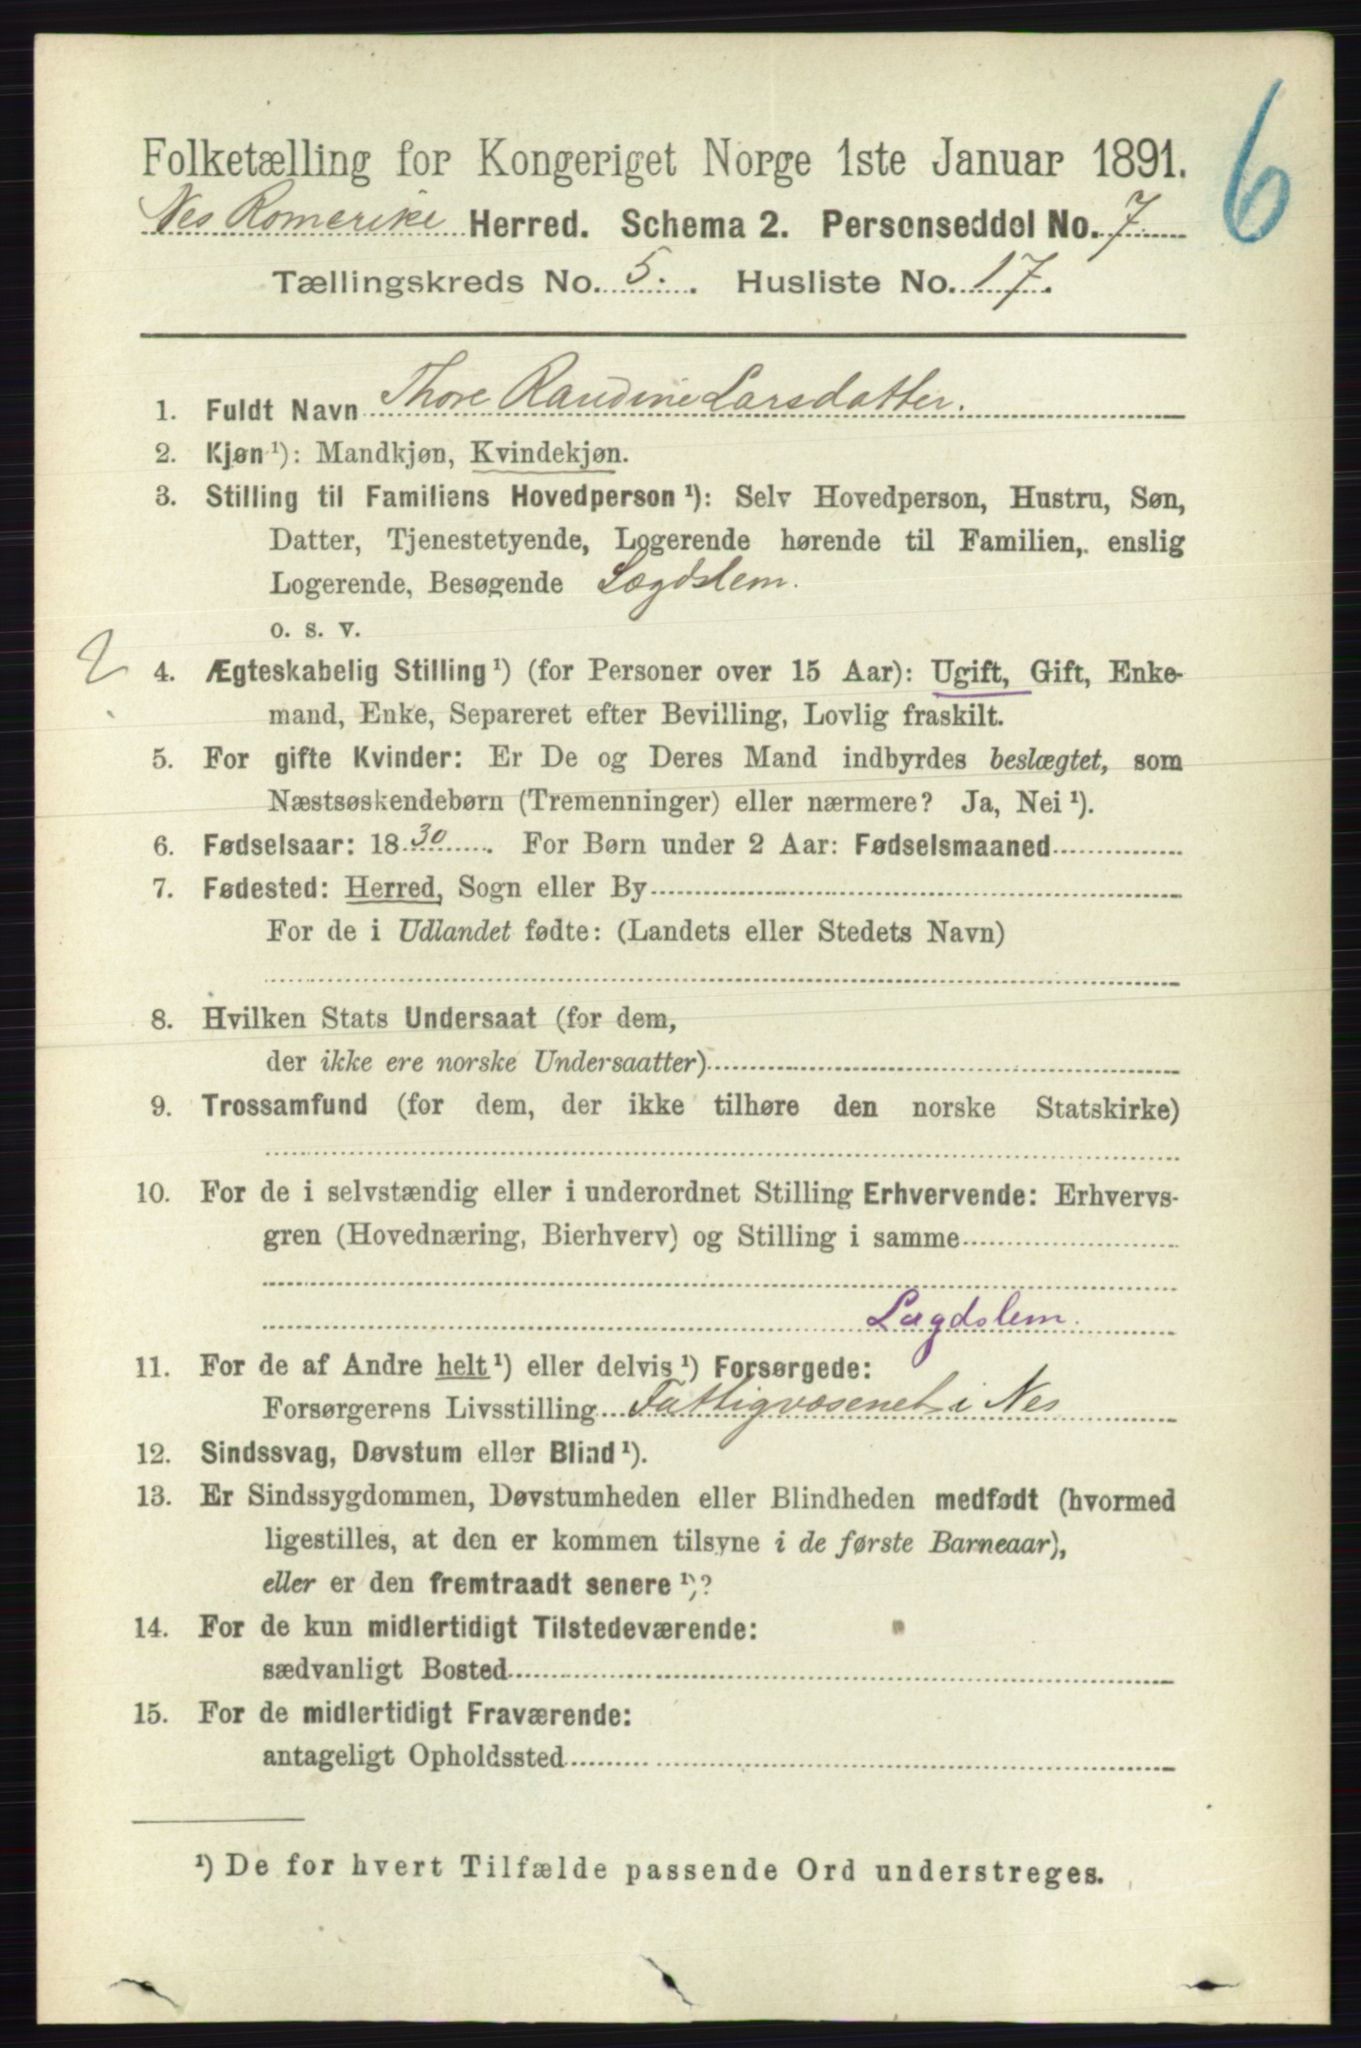 6
Folketælling for Kongeriget Norge 1ste Januar 1891.
Nes Romerike Herred. Schema 2. Personseddel No. 7
Tællingskreds No. 5. Husliste No. 17.
1. Fuldt Navn Thore Raudine Larsdatter.
2. Kjøn ¹): Mandkjøn, Kvindekjøn.
3. Stilling til Familiens Hovedperson ¹): Selv Hovedperson, Hustru, Søn,
Datter, Tjenestetyende, Logerende hørende til Familien, enslig
Logerende, Besøgende Lægdslem.
o. s. v.
2
4. Ægteskabelig Stilling ¹) (for Personer over 15 Aar): Ugift, Gift, Enke-
mand, Enke, Separeret efter Bevilling, Lovlig fraskilt.
5. For gifte Kvinder: Er De og Deres Mand indbyrdes beslægtet, som
Næstsøskendebørn (Tremenninger) eller nærmere? Ja, Nei ¹).
6. Fødselsaar: 1830. For Børn under 2 Aar: Fødselsmaaned
7. Fødested: Herred, Sogn eller By
For de i Udlandet fødte: (Landets eller Stedets Navn)
8. Hvilken Stats Undersaat (for dem,
der ikke ere norske Undersaatter)
9. Trossamfund (for dem, der ikke tilhøre den norske Statskirke)
10. For de i selvstændig eller i underordnet Stilling Erhvervende: Erhvervs-
gren (Hovednæring, Bierhverv) og Stilling i samme
Lægdslem.
11. For de af Andre helt ¹) eller delvis ¹) Forsørgede:
Forsørgerens Livsstilling Fattigvæsenet i Nes
12. Sindssvag, Døvstum eller Blind ¹).
13. Er Sindssygdommen, Døvstumheden eller Blindheden medfødt (hvormed
ligestilles, at den er kommen tilsyne i de første Barneaar),
eller er den fremtraadt senere ¹)?
14. For de kun midlertidigt Tilstedeværende:
sædvanligt Bosted
15. For de midlertidigt Fraværende:
antageligt Opholdssted
¹) De for hvert Tilfælde passende Ord understreges.